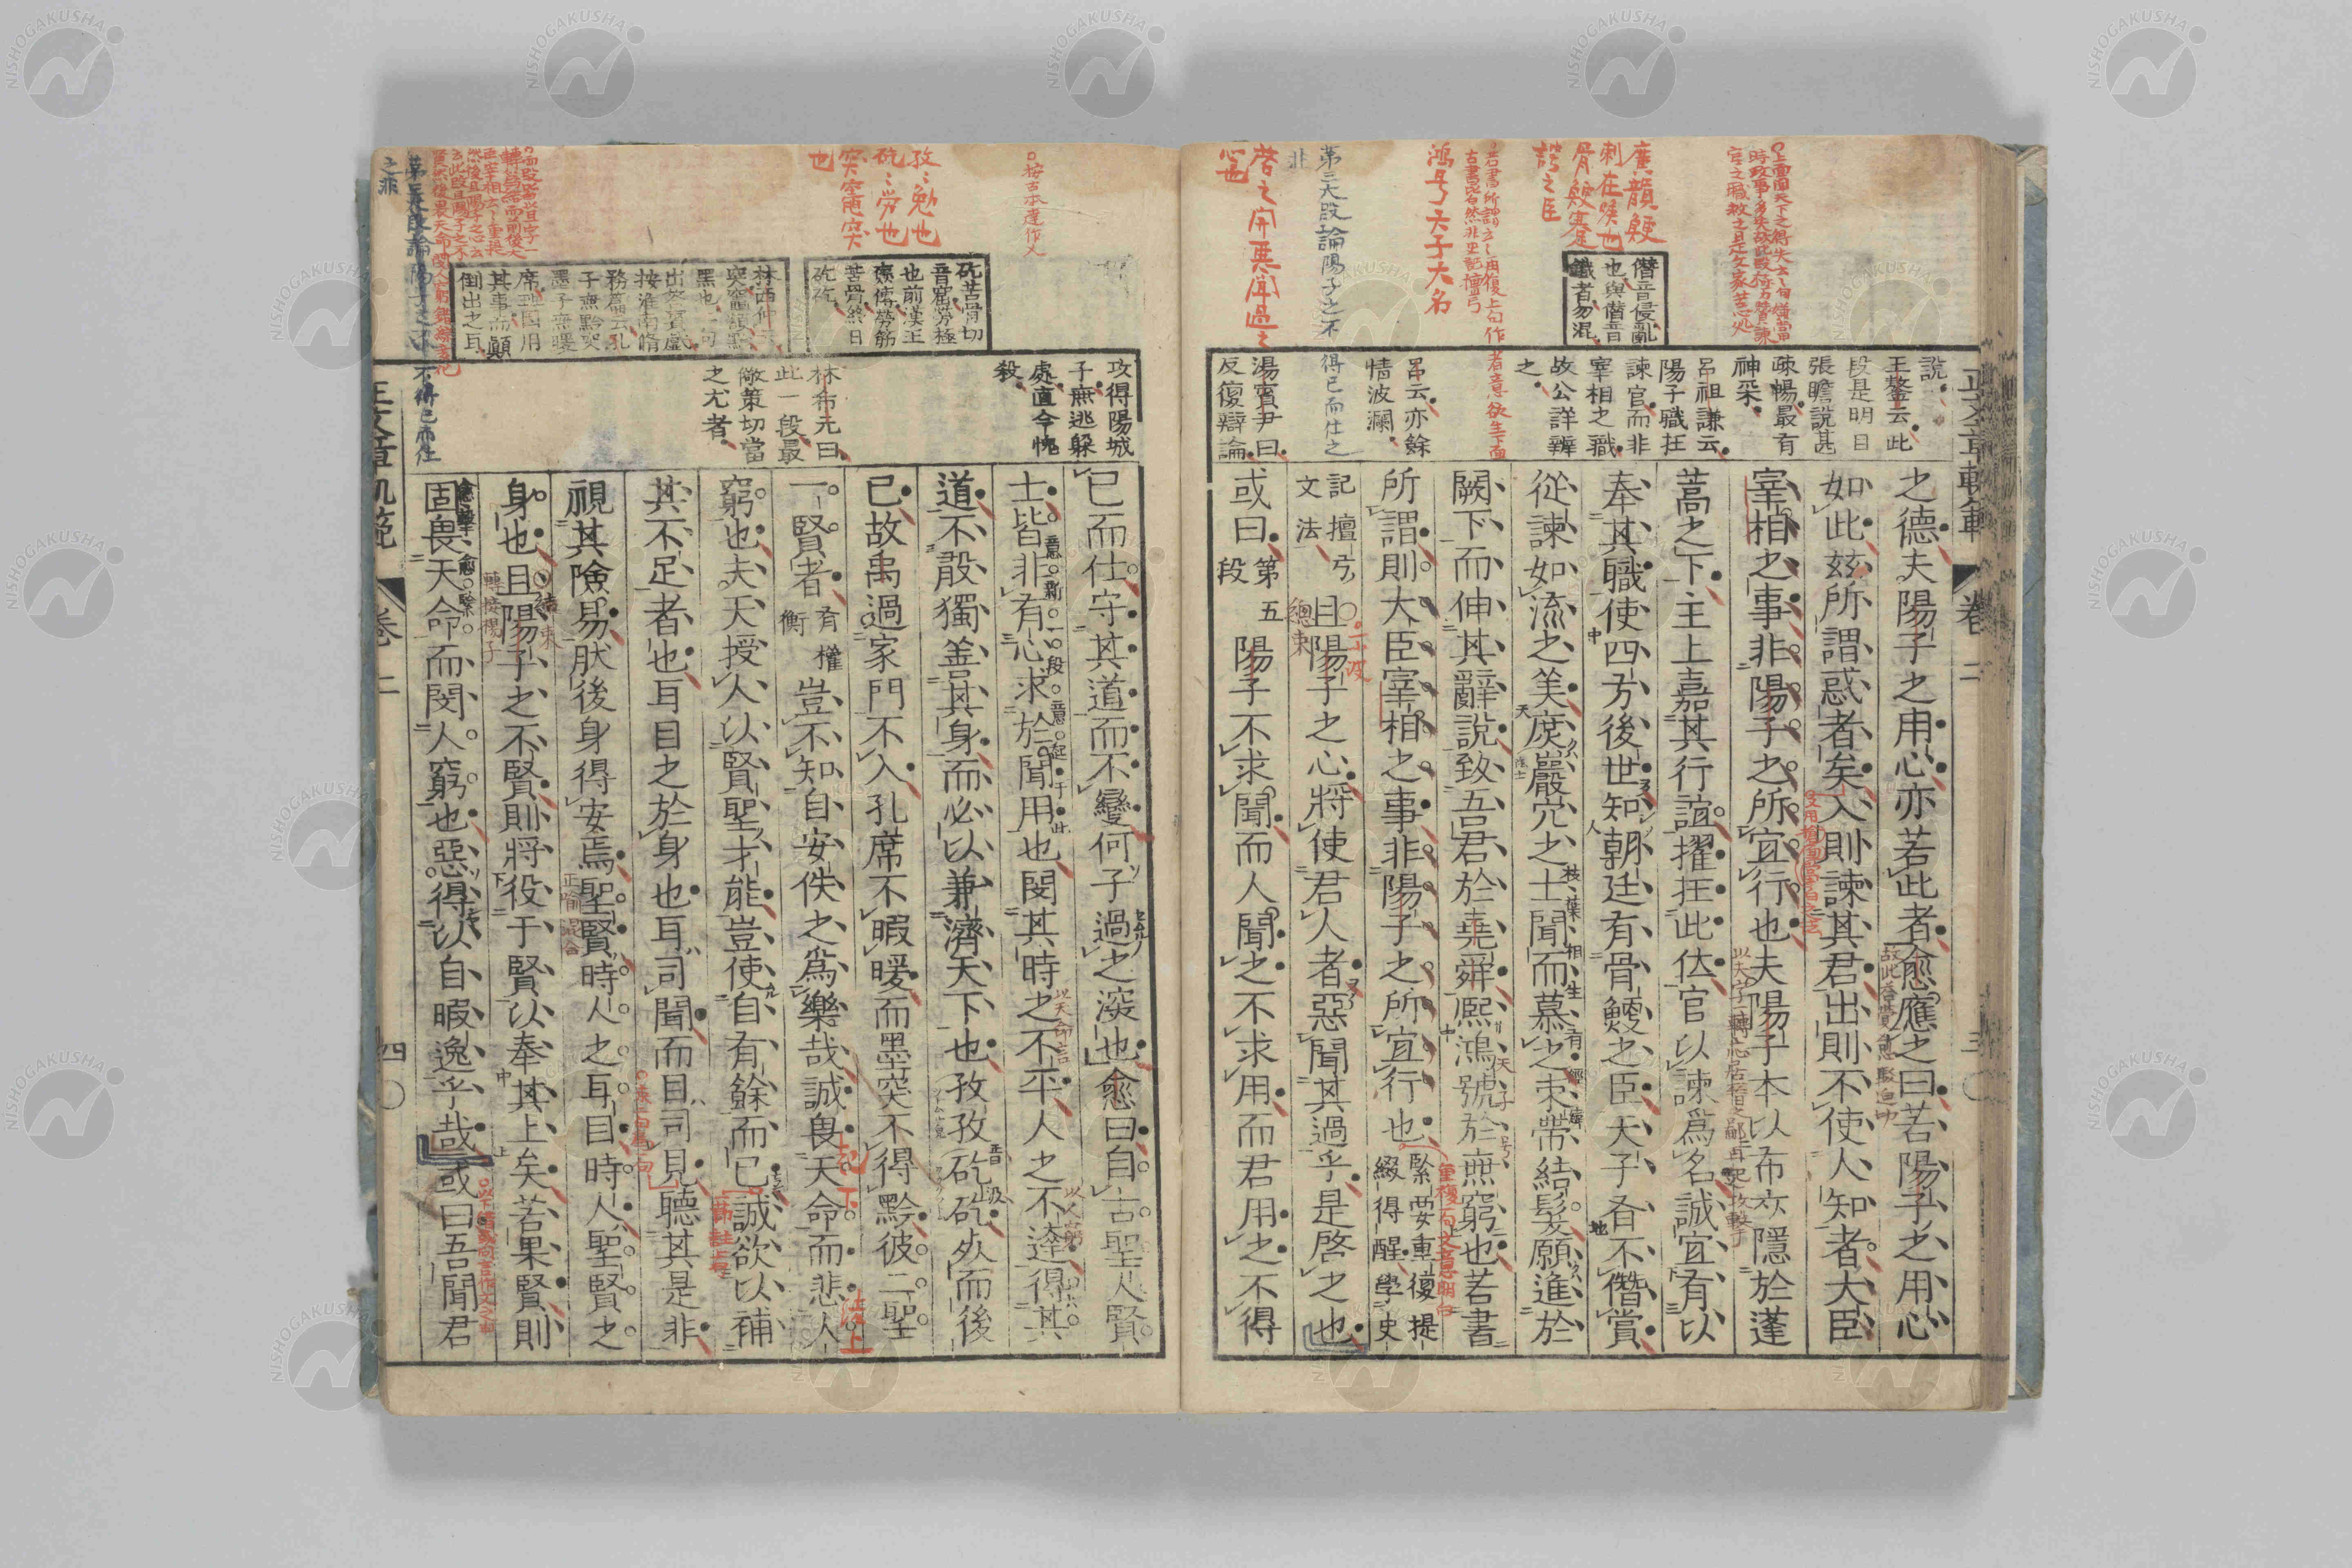 之德夫陽子之用心亦若此者愈應之曰若陽子之用心
如此玆所謂惑者矣入則諫其君出則不使人知者大臣
宰相之事非陽子之所宜行也夫陽子本以布衣隱於蓬
蒿之下主上嘉其行誼擢在此位官以諫爲名誠宜有以
奉其職使四方後世知朝廷有骨鯁之臣天子有不僭賞
從諫如流之美庶巖穴之士聞而慕之束帶結髮願進於
闕下而伸其辭說致吾君於堯舜熙鴻號於無窮也若書
所謂則大臣宰相之事非陽子之所宜行也緊要重復提
綴得醒學史
記檀弓
文法
且陽子之心將使君人者惡聞其過乎是啓之也
或曰第五
段
陽子不求聞而人聞之不求用而君用之不得
已而仕守其道而不變何子過之深也愈曰自古聖人賢
士皆非有心求於聞用也閔其時之不平人之不逢得其
道不敢獨善其身而必以兼濟天下也孜孜矻矻死而後
已故禹過家門不入孔席不暇暖而墨突不得黔彼二聖
一賢者有權
衡
豈不知自安佚之爲樂哉誠畏天命而悲人
窮也夫天授人以賢聖才能豈使自有餘而已誠欲以補
其不足者也耳目之於身也耳司聞而目司見聽其是非
視其險易然後身得安焉聖賢時人之耳目時人聖賢之
身也且陽子之不賢則將役于賢以奉其上矣若果賢則
固畏天命而閔人窮也惡得以自暇逸乎哉或曰吾聞君
說
王鏊云此
段是明目
張瞻說甚
疎暢最有
神采
呂祖謙云
陽子職在
諫官而非
宰相之職
故公詳辨
之
呂云亦餘
情波瀾
湯賓尹曰
反復辯論
攻得陽城
子無逃躲
處直令愧
殺
林希元曰
此一段最
敵策切當
之尤者
僭音侵亂
也與僭音
鐵者勿混
矻苦骨切
音窟勞極
也前漢王
褒傳勞筋
苦骨終日
矻矻
林西仲云
突竈額黔
黑也二句
出答賓戲
按淮南脩
務篇云孔
子無黔突
墨子無暖
席班固用
其事而顛
倒出之耳
鴻号天子大名
啓之開要聞過之
心也
骨鯁蹇諤之臣
孜〻勉也
矻〻勞也
突竈突
也
按古本逢作乂
第三大段論陽子之不得已而仕之
非
第三大段論陽子之不得已而仕
之非
卷二
三
正文章軌範
卷二
四
NISHOGAKUSHA